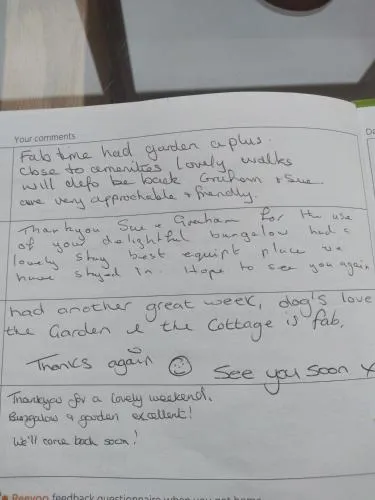 Your comments
Da
Fab time had garden a plus.
Close to amenities lovely walks
will defo be back Graham + Sue
are very approchable + friendly.
Thankyou Sue & Graham for the use
of your delightful bungalow had a
lovely stay best equipt place we
have stayed in. Hope to see you again
had another great week, dog's love
the Garden & the Cottage is fab.
Thanks again ☺ See you soon x
Thankyou for a lovely weekend.
Bungalow & garden excellent!
We'll come back soon!
feedback questionnaire when you get home